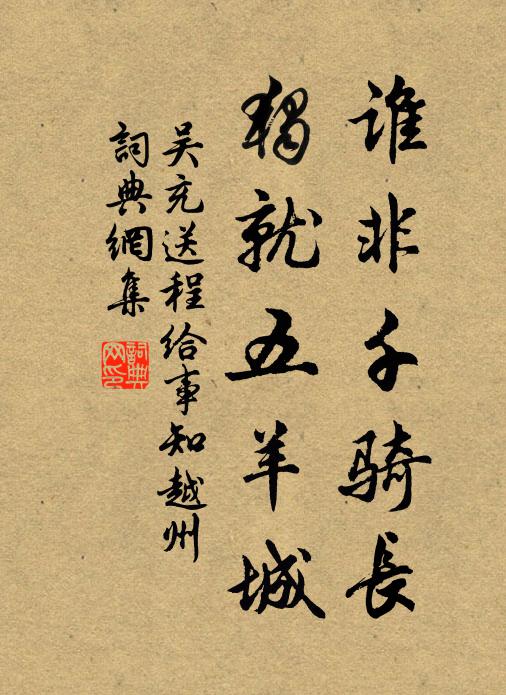 誰非千騎長
獨就五羊城
吳充送程給事知越州
詞典網集
詞典網印